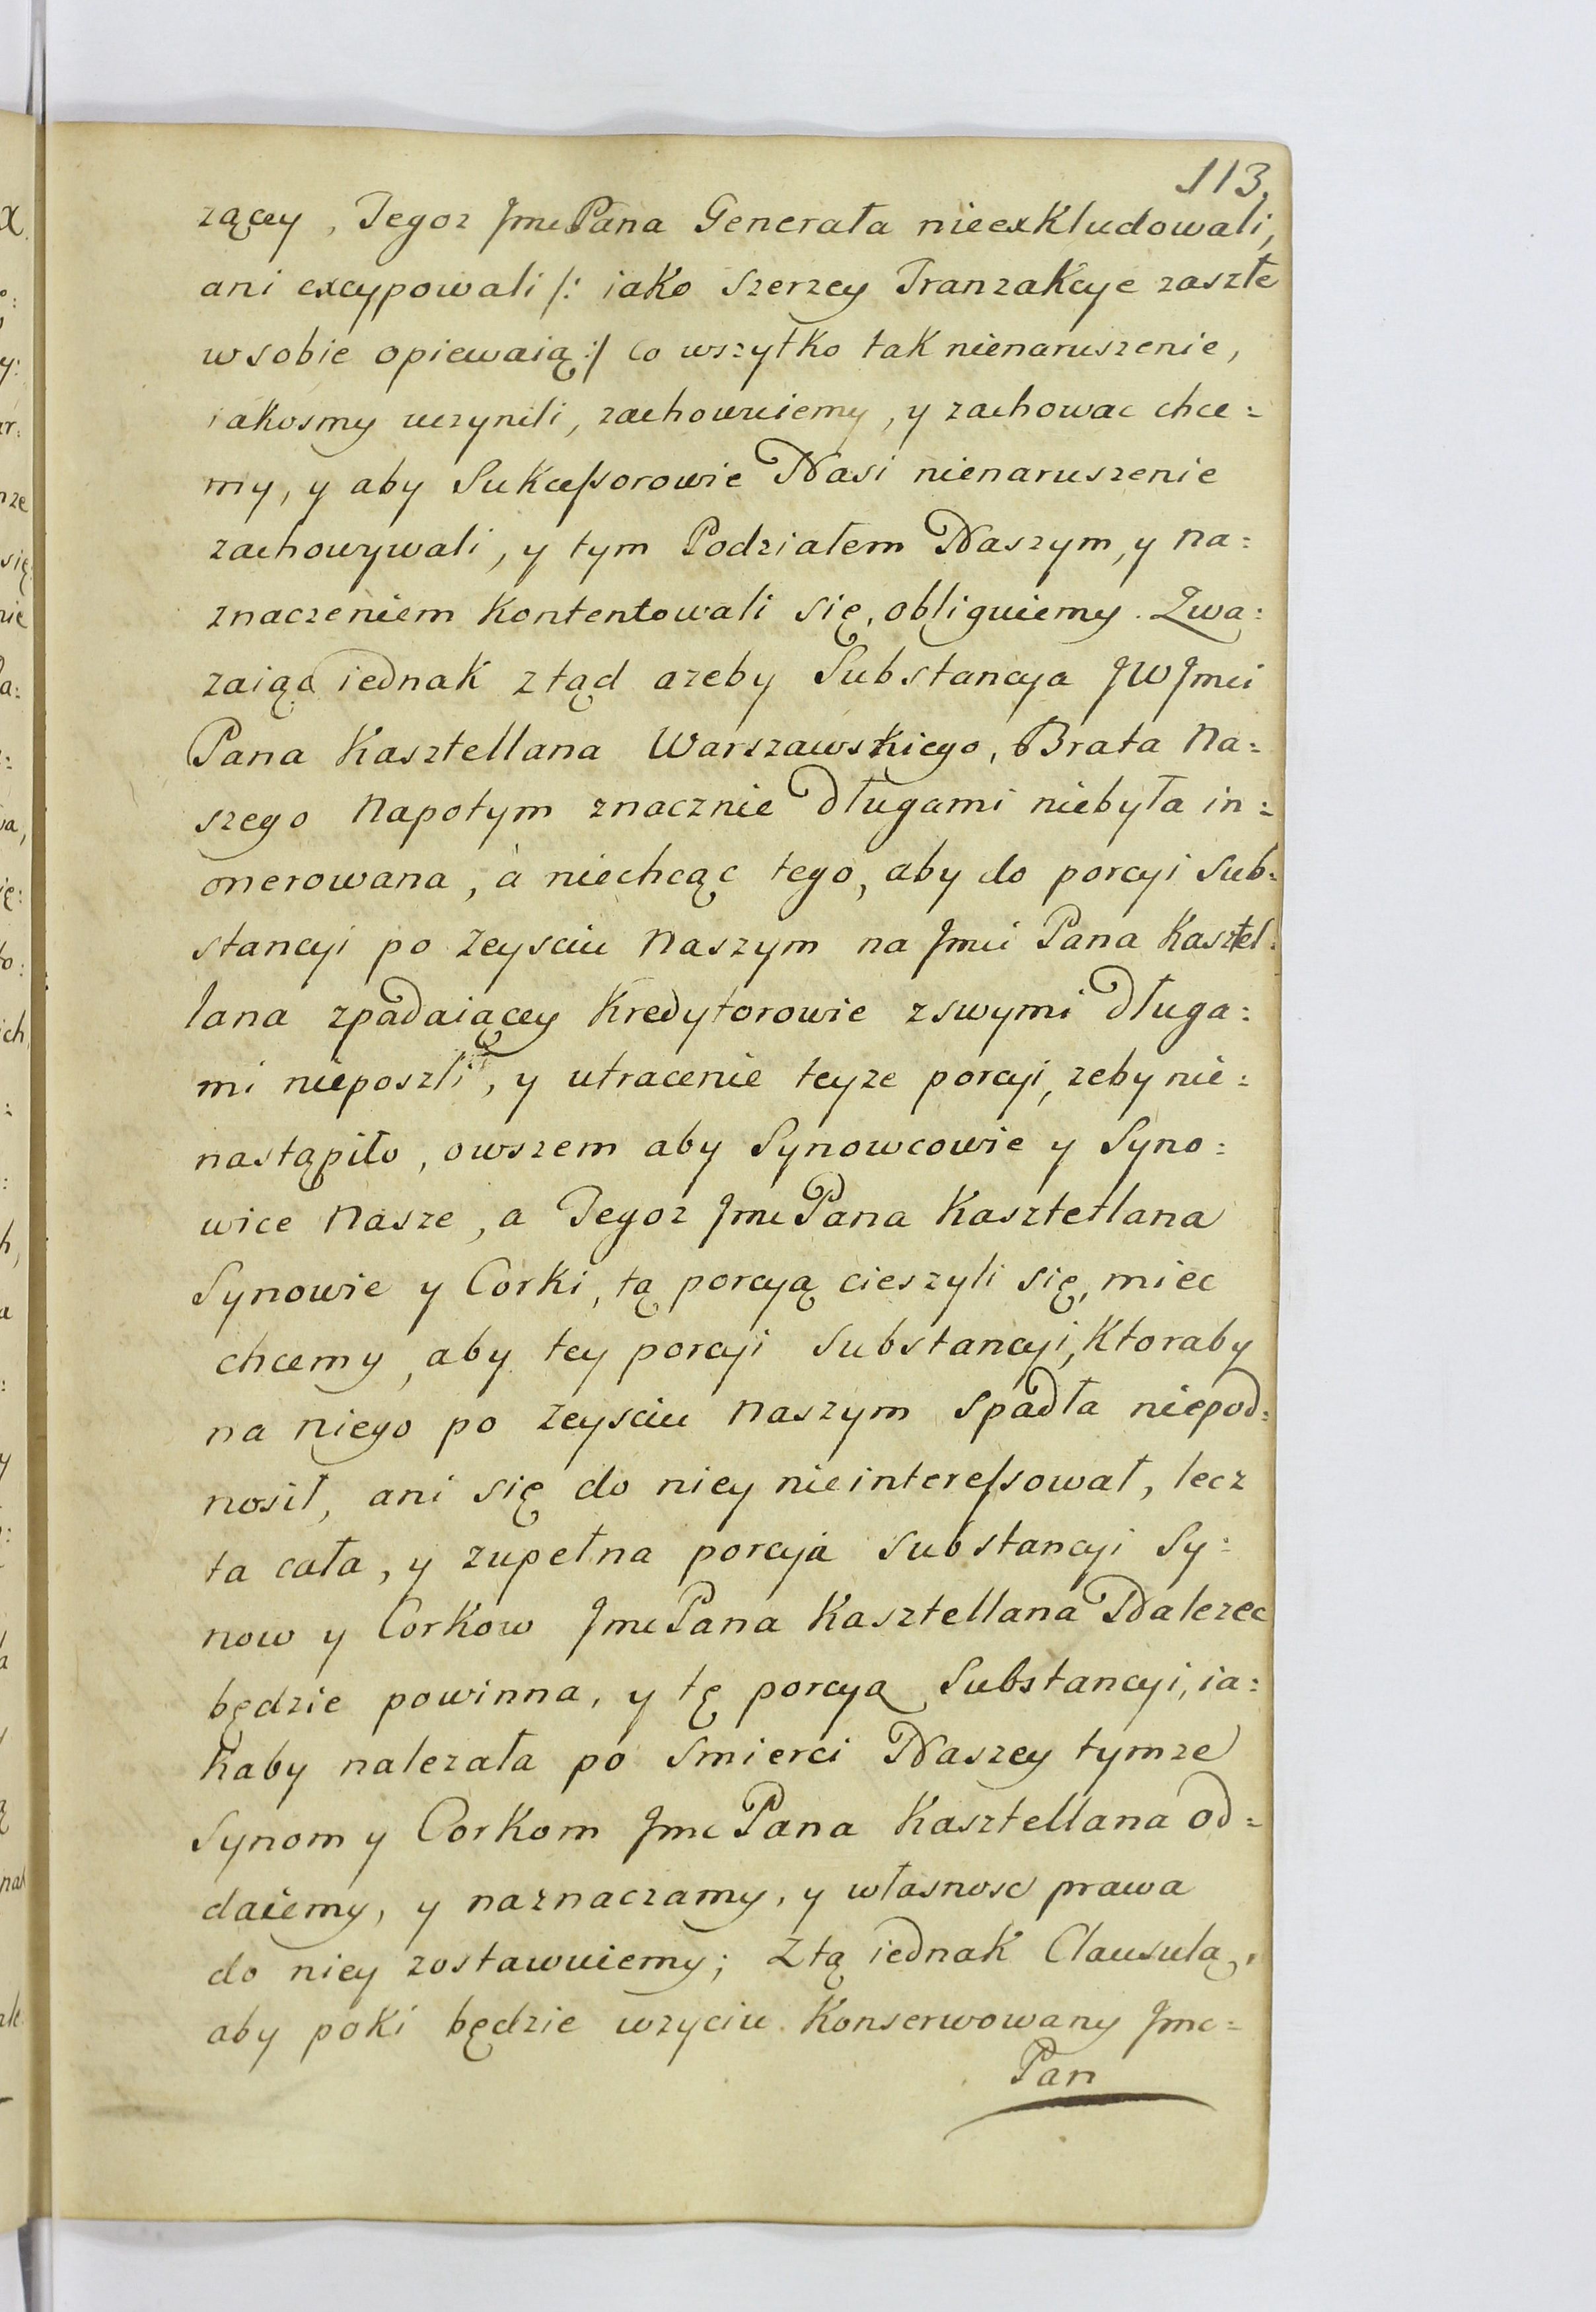 113.
zącey, Tegoz Jmć Pana Generała nieexkludowali,
ani excypowali /: iako szerzey Tranzakcye zaszłe
wsobie opiewaią :/ co wszytko tak nienaruszenie,
iakosmy uczynili, zachowuiemy, y zachowac chce=
my, y aby Sukcessorowie Nasi nienaruszenie
zachowywali, y tym Podziałem Naszym, y na=
znaczeniem kontentowali się, obliguiemy. Zwa=
zaiąc iednak ztąd azeby Substancya JW Jmci
Pana Kasztellana Warszawskiego, Brata Na=
szego Napotym znacznie długami niebyła in=
onerowana, a niechcąc tego, aby do porcyi Sub=
stancyi po zeysciu Naszym na Jmci Pana Kasztel=
lana zpadaiącey Kredytorowie zswymi długa=
mi nieposzli, y utracenie teyze porcyi, zeby nie=
nastąpiło, owszem aby Synowcowie y Syno=
wice Nasze, a Tegoz Jmć Pana Kasztellana
Synowie y Corki, tą porcyą cieszyli się, miec
chcemy, aby tey porcyi Substancyi, Ktoraby
na niego po zeysciu Naszym spadła niepod=
nosił, ani się do niey nieinteressował, lecz
ta cała, y zupełna porcyia Substancyi Sy=
now y Corkow Jmć Pana Kasztellana Nalezec
będzie powinna, y tę porcyą Substancyi, ia=
kaby nalezała po Smierci Naszey tymze
Synom y Corkom Jmć Pana Kasztellana od=
daiemy, y naznaczamy, y własnosc prawa
do niey zostawuiemy; Ztą iednak Clausulą,
aby poki będzie wzyciu Konserwowany Jmć=
Pan